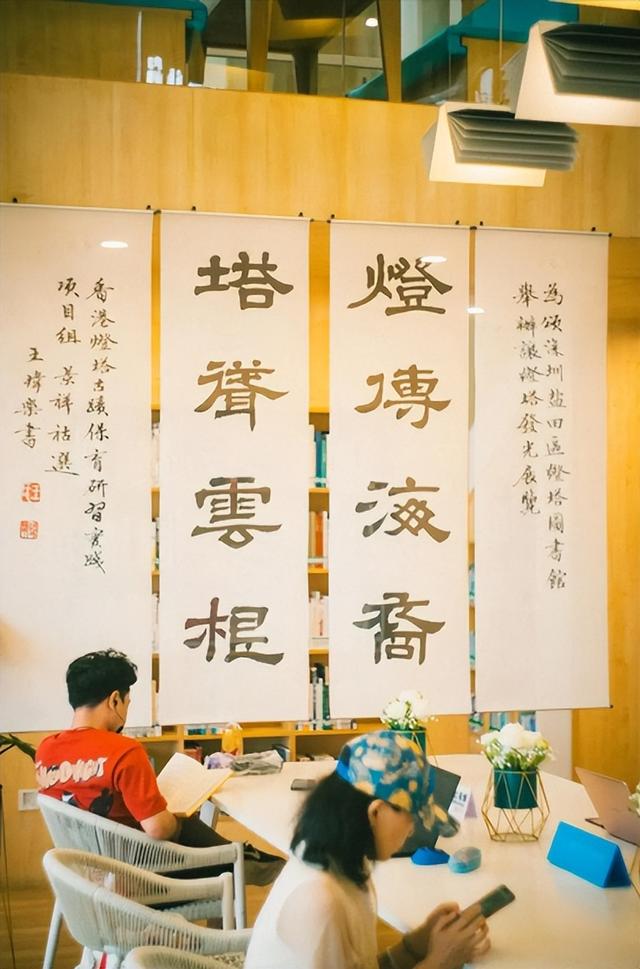 為頌深圳盐田區燈塔圖書館
舉辦讓燈塔發光展覽
燈傳海裔
塔聳雲根
香港燈塔古蹟保育研習實踐
項目組 景祥祜選
王瑋樂書